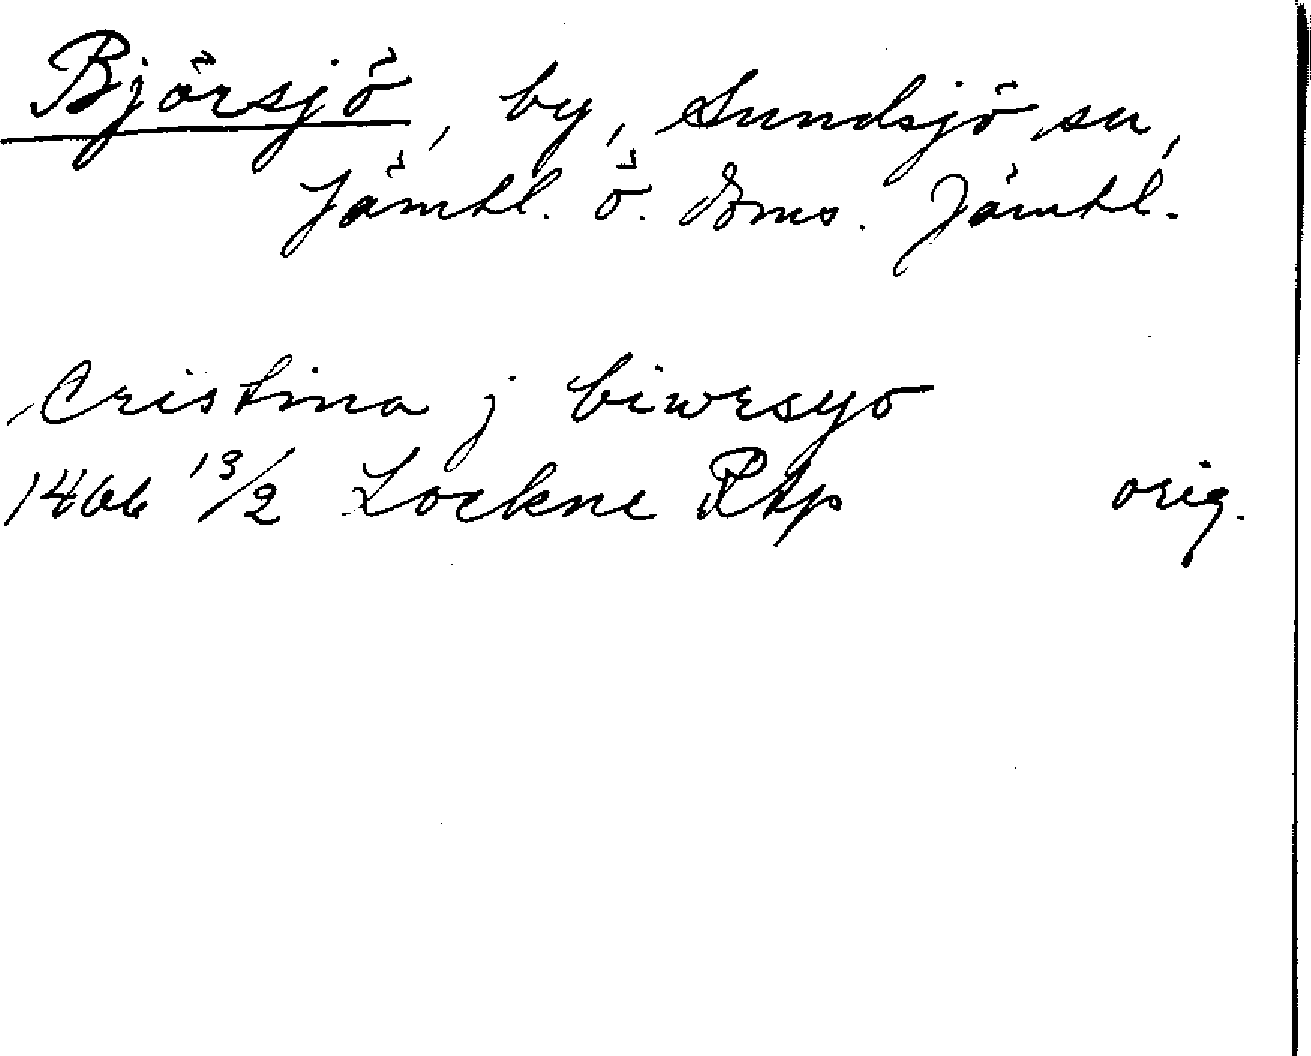 Björsjö, by, Sundsjö sn,
Jämtl. ö. dms. Jämtl.
Cristina j biwrsyo
1466 13/2 Lockne Rtp orig.